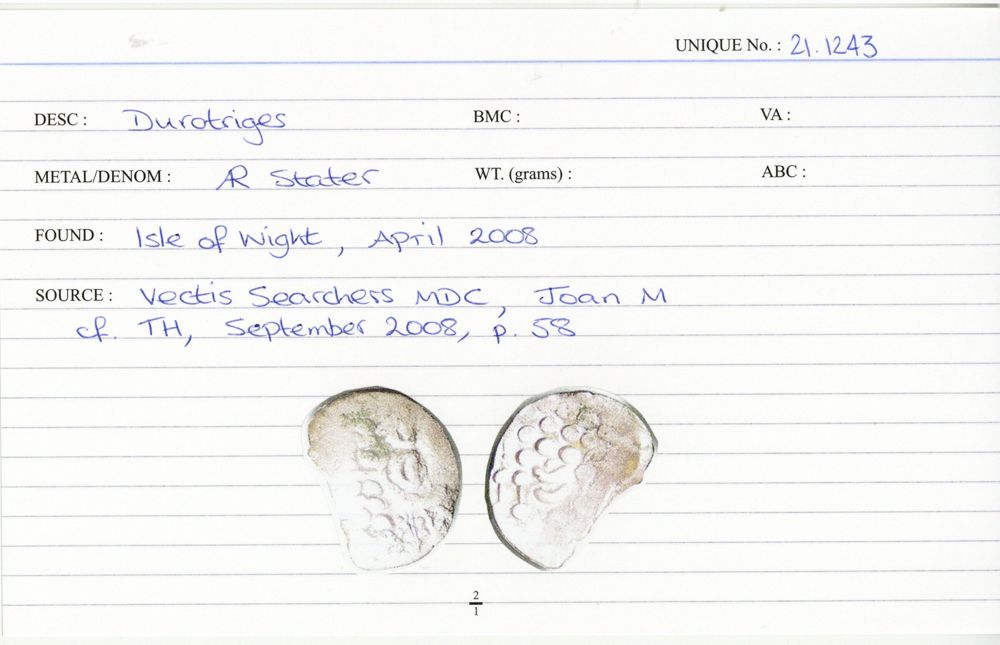 UNIQUE No. : 21.1243
DESC : Durotriges BMC : VA :
METAL/DENOM : AR Stater WT. (grams) : ABC :
FOUND : Isle of Wight, April 2008
SOURCE : Vectis Searchers MDC, Joan M
cf. TH, September 2008, p. 58
2
1